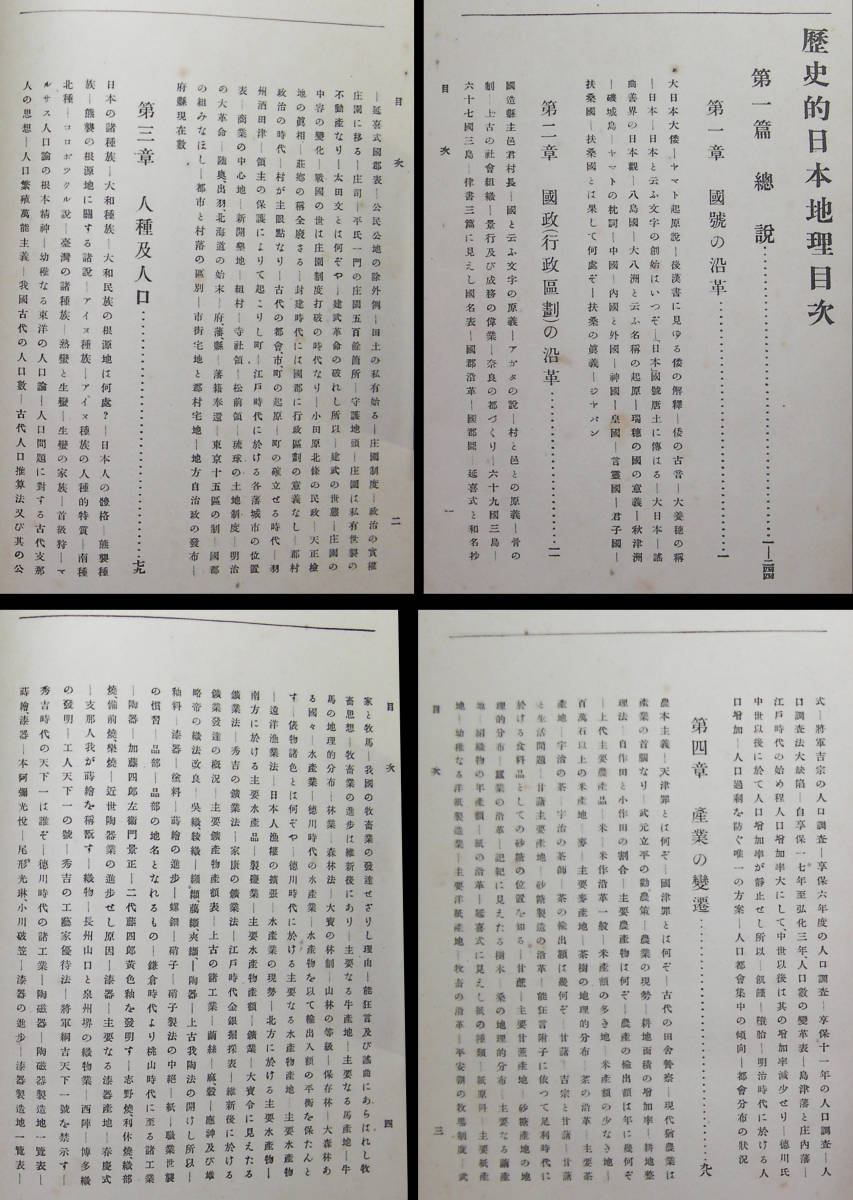 歷史的日本地理目次
第一篇 總說…………一—三四四
第一章 國號の沿革…………一
大日本大倭—ヤマト起原說—後漢書に見ゆる倭の解釋—倭の古音—大養德の稱
—日本—日本と云ふ文字の創始はいつぞ—「日本」國號唐土に傳はる—大日本—謠
曲善界の日本觀—八島國—大八洲と云ふ名稱の起原—瑞穗の國の意義—秋津洲
—磯城島—ヤマトの枕詞—中國—內國と外國—神國—皇國—言靈國—君子國—
扶桑國—扶桑國とは果して何處ぞ—扶桑の眞義—ジヤパン
第二章 國政(行政區劃)の沿革…………一一
國造縣主邑君村長—國と云ふ文字の原義—アガタの說—村と邑との原義—昔の
制—上古の社會組織—景行及び成務の偉業—奈良の都づくり—六十九國三島—
六十七國三島—律書三篇に見えし國名表—國郡沿革—國郡圖—延喜式と和名抄
目次 一
目次 二
—延喜式國郡表—公民公地の除外例—田土の私有始る—庄園制度—政治の實權
庄園に移る—庄司—平氏一門の庄園五百餘箇所—守護地頭—庄園は私有世襲の
不動產なり—太田文とは何ぞや—建武革命の破れし所以—建武の世態—庄園の
中容の變化—戰國の世は庄園制度打破の時代なり—小田原北條の民政—天正檢
地の眞相—莊鄉の稱全廢さる—封建時代には國郡に行政區劃の意義なし—郡村
政治の時代—村が主眼點なり—古代の都會「市」「町」の起原—町の確立せる時代—羽
州酒田津—領主の保護によりて起こりし町—江戶時代に於ける各藩城市の位置
表—商業の中心地—新開墾地—紐村—寺社領—松前領—琉球の土地制度—明治
の大革命—陸奧、出羽、北海道の始末—府藩縣—藩籍奉還—東京十五區の制—國郡
の組みなほし—都市と村落の區別—市街宅地と郡村宅地—地方自治政の發布—
府縣現在數
第三章 人種及人口…………七九
日本の諸種族—大和種族—大和民族の根源地は何處?—日本人の體格—熊襲種
族—熊襲の根源地に關する諸說—アイヌ種族—アイヌ種族の人種的特質—南種
北種—コロボツクル說—臺灣の諸種族—熟蠻と生蠻—生蠻の家族—首級狩—マ
ルサス人口論の根本精神—幼稚なる東洋の人口論—人口問題に對する古代支那
人の思想—人口繁殖萬能主義—我國古代の人口數—古代人口推算法又び其の公
式—將軍吉宗の人口調查—享保六年度の人口調查—享保十一年の人口調查—人
口調查法大缺陷—自享保一七年至弘化三年、人口數の變革表—島津藩と庄內藩—
江戶時代の始め程人口增加率大にして中世以後は其の增加率減少せり—德川氏
中世以後に於て人口增加率が靜止せし所以—飢饉—墮胎—明治時代に於ける人
口增加—人口過剩を防ぐ唯一の方案—人口都會集中の傾向—都會分布の狀況
第四章 產業の變遷…………一九八
農本主義—天津罪とは何ぞ—國津罪とは何ぞ—古代の田舍警察—現代猶農業は
產業の首腦なり—武元立平の勸農策—農業の現勢—耕地面積の增加率—耕地整
理法—自作田と小作田の割合—主要農產物は何ぞ—農產の輸出額は年に幾何ぞ
—上代主要農產品—米—米作沿革一般—米產額の多き地—米產額の少なき地—
百萬石以上の米產地—麥—主要麥產地—茶樹の地理的分布—茶の沿革—主要茶
產地—宇治の茶—宇治の茶師—茶の輸出額は幾何ぞ—甘藷—吉宗と甘藷—甘藷
と生活問題—甘藷主要產地—砂糖製造の沿革—能狂言附子に依つて足利時代に
於ける食料品としての砂糖の位置を知る—甘蔗—主要甘蔗產地—砂糖產地の地
理的分布—蠶業の沿革—記紀に見えたる樹木—桑の地理的分布—主要なる繭產
地—絹織物の年產額—紙の沿革—延喜式に見えし紙の種類—紙原料—主要紙產
地—幼稚なる洋紙製造業—主要洋紙產地—牧畜の沿革—平安朝の牧場制度—武
目次 三
目次 四
家と牧馬—我國の牧畜業の發達せざりし理由—能狂言及び謠曲にあらはれし牧
畜思想—牧畜業の進步は維新後にあり—主要なる牛產地—主要なる馬產地—牛
馬の地理的分布—林業—森林法—大寶の林制—山林の等級—保存林—大森林あ
る國々—水產業—德川時代の水產業—水產物を以て輸出入額の平衡を保たんと
す—俵物諸色とは何ぞや—德川時代に於ける主要なる水產物產地—主要水產物
—遠洋漁業法—日本人漁權の擴張—水產業の現勢—北方に於ける主要水產物—
南方に於ける主要水產品—製鹽業—主要水產物產額—鑛業—大寶令に見えたる
鑛業法—秀吉の鑛業法—家康の鑛業法—江戶時代金銀銅採表—維新後に於ける
鑛業發達の槪況—主要鑛產物產額表—上古の諸工業—繭絲—麻穀—應神及び雄
略帝の織法改良—吳織、綾織—纐纈、﨟纈、夾纈—陶器—上古我陶法の開けし所以—
釉料—漆器—塗料—蒔繪の進步—螺鈿—硝子—硝子製法の中絕—紙—職業世襲
の慣習—品部—品部の地名となれるもの—鎌倉時代より桃山時代に至る諸工業
—陶器—加藤四郎左衞門景正—二代藤四郎黃色釉を發明す—志野燒、利休燒、織部
燒、備前燒、樂燒—近世陶器業の進步せし原因—漆器—主要なる漆器產地—春慶式
—支那人我が蒔繪を稱翫す—織物—長州山口と泉州堺の織物業—西陣—博多織
の發明—工人天下一の號—秀吉の工藝家優待法—將軍綱吉天下一號を禁示す—
秀吉時代の天下一は誰ぞ—德川時代の諸工業—陶磁器—陶磁器製造地一覽表—
蒔繪、漆器—本阿彌光悅—尾形光琳、小川破笠—漆器の進步—漆器製造地一覽表—